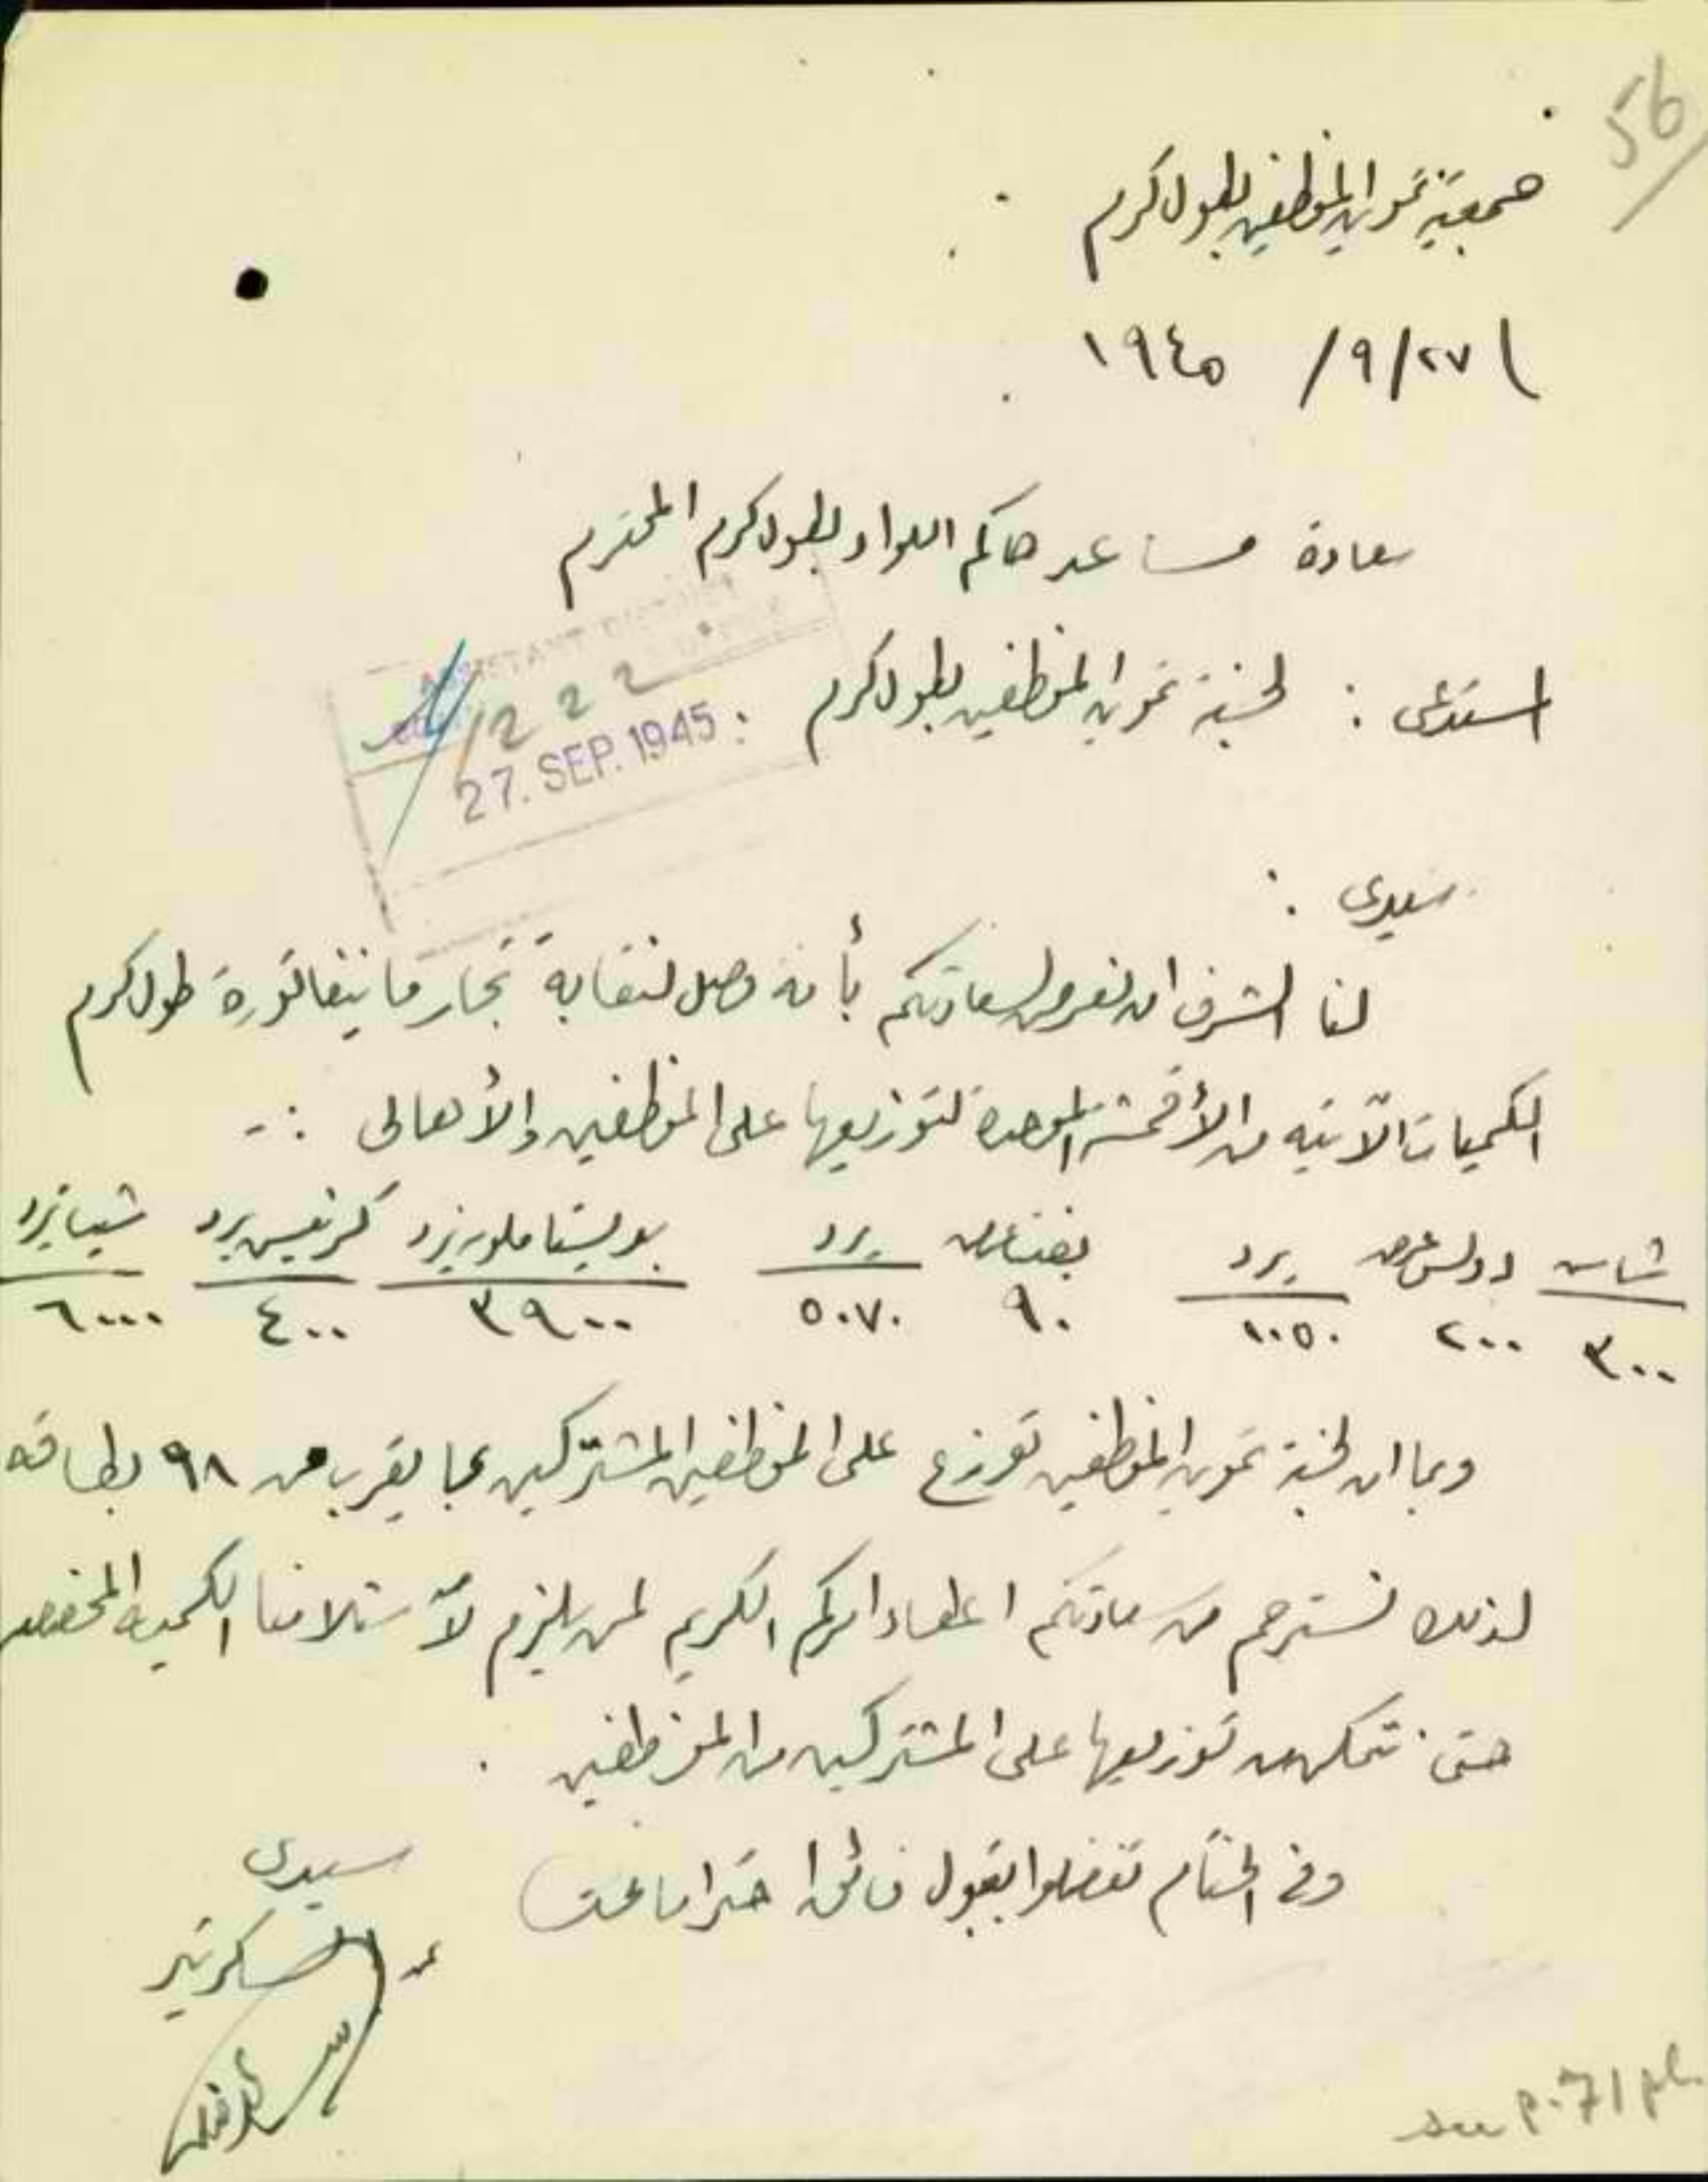 56
جمعية تموين الموظفين بطولكرم
١٩٤٥ /٩/٢٧
سعادة مساعد حاكم اللواء بطولكرم المحترم
المستدعي : لجنة تموين الموظفين بطولكرم
ASSISTANT DISTRICT
1222
27. SEP. 1945
سيدي :
لنا الشرف ان نعرض لسعادتكم بأنه وصل لنقابة تجار مانيفاتورة طولكرم
الكميات الآتيه من الأقمشة الموحدة لتوزيعها على الموظفين والأهالي :-
شاش يرد يرد يرد كريبس يرد شيت يرد
٣٠٠ ٢٠٠ ١٠٥٠ ٩٠ ٥٠٧٠ ٣٩٠٠ ٤٠٠ ٦٠٠٠
وبما ان لجنة تموين الموظفين توزع على الموظفين المشتركين بما يقرب من ٩٨ بطاقه
لذلك نسترحم من سعادتكم اعطاء امركم الكريم لمن يلزم لآستلامنا الكميه المخصصه
حتى نتمكن من توزيعها على المشتركين من الموظفين .
وفي الختام تفضلوا بقبول فائق احتراماتنا
سيدي
السكرتير
see p. 71 pls